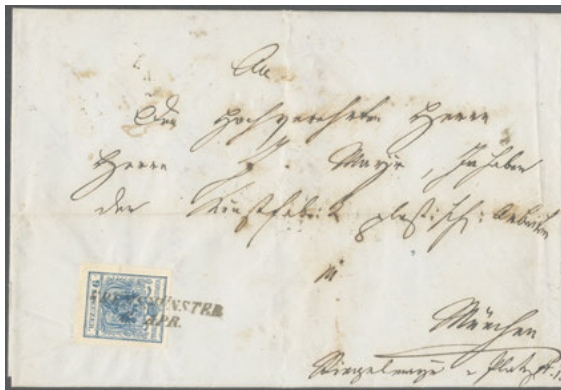 An
Den Hochverehrten Herrn
Herrn J. Mayr, Inhaber
der Kunstfabrik plastisch: Arbeiten
in
München
9 KREUZER
MÜNSTER
APR.